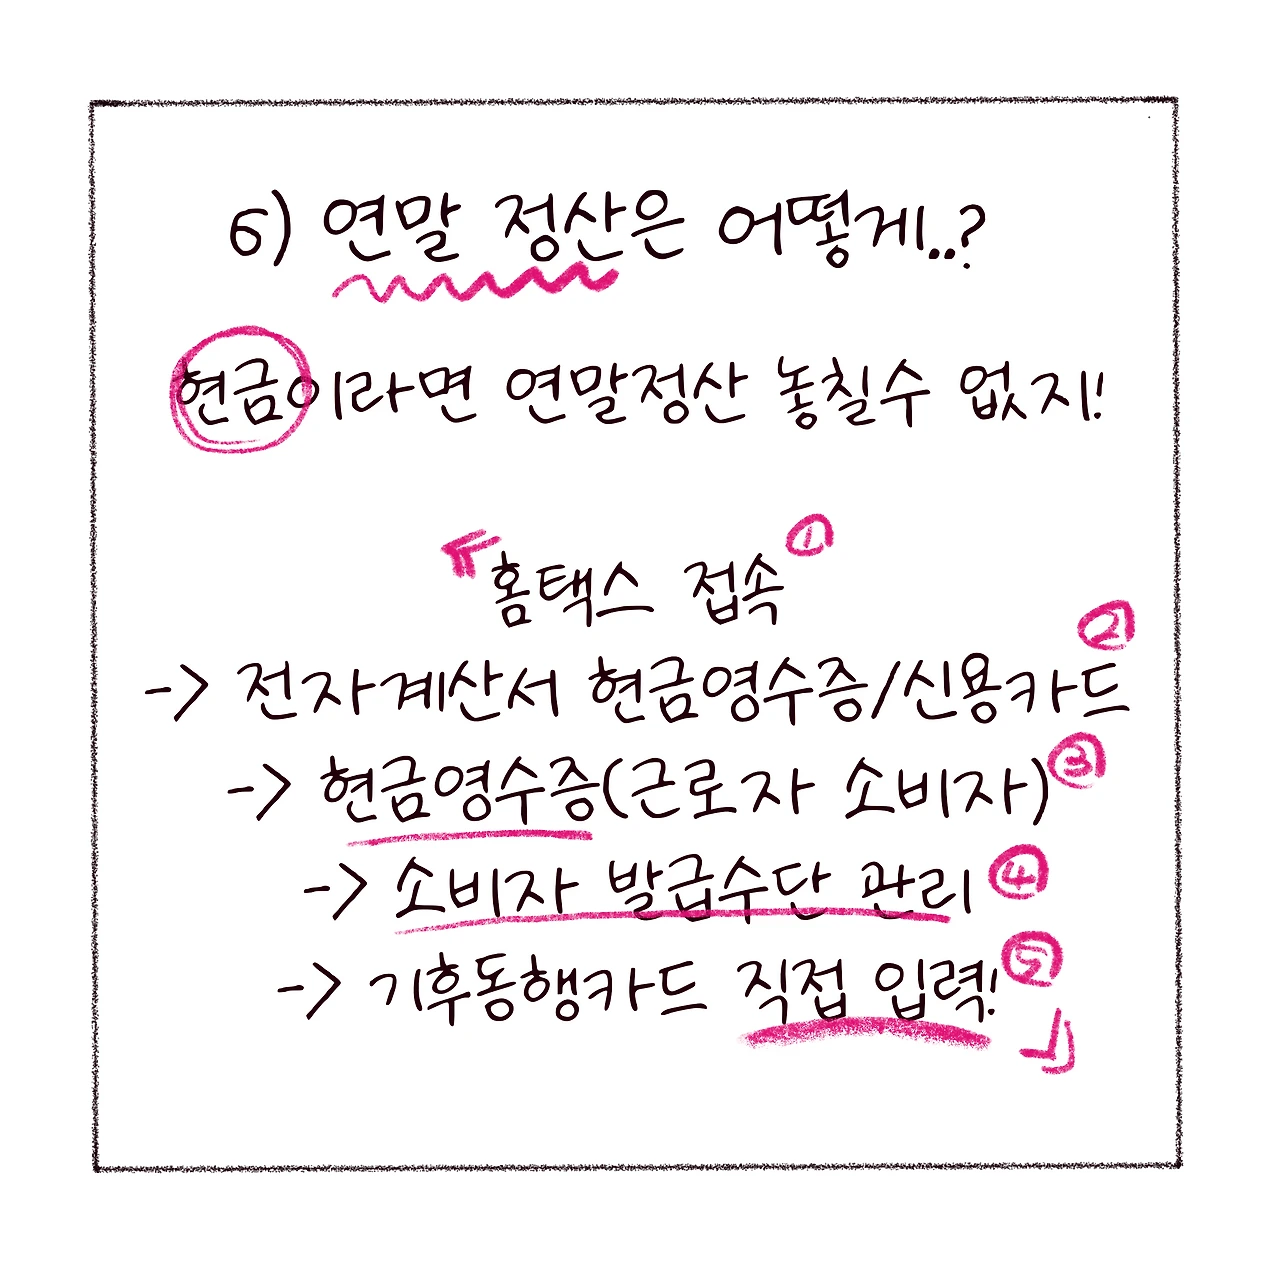 6) 연말 정산은 어떻게..?
현금이라면 연말정산 놓칠수 없지!
『홈택스 접속 ①
-> 전자계산서 현금영수증/신용카드 ②
-> 현금영수증(근로자 소비자) ③
-> 소비자 발급수단 관리 ④
-> 기후동행카드 직접 입력! ⑤』